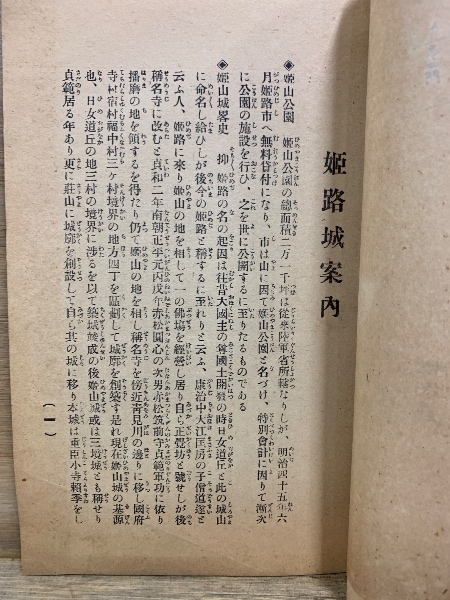 姫路城案内
◈姫山公園　姫山公園の總面積二万一千坪は從來陸軍省所轄なりしが、明治四十五年六
月姫路市へ無料貸付になり、市は山に因て姫山公園と名づけ、特別會計に因りて漸次
に公園の施設を行ひ、之を世に公開するに至りたるものである
◈姫山城畧史　抑姫路の名の起因は往昔大國主の尊國土開發の時日女道丘と此の城山
に命名し給ひしが後今の姫路と稱するに至れりと云ふ、康治中大江匡房の子僧道邃と
云ふ人、姫路に來り姫山の地を相して一の佛場を經營し居り自ら正覺坊と號せしが後
稱名寺に改む貞和二年南朝正平元丙戌年赤松圓心の次男赤松筑前守貞範軍功に依り
播磨の地を領するを得たり仍て姫山の地を相し稱名寺を傍近靑見川の邊りに移し國府
寺村宿村福中村三ヶ村境界の地方四丁を區劃して城廓を創築す是れ現在姫山城の基源
也、日女道丘の地三村の境界に渉るを以て築城竣成の後姫山城或は三境城とも稱せり
貞範居る年あり更に莊山に城廓を創築して自ら其の城に移り本城は重臣小寺賴季をし
(一)